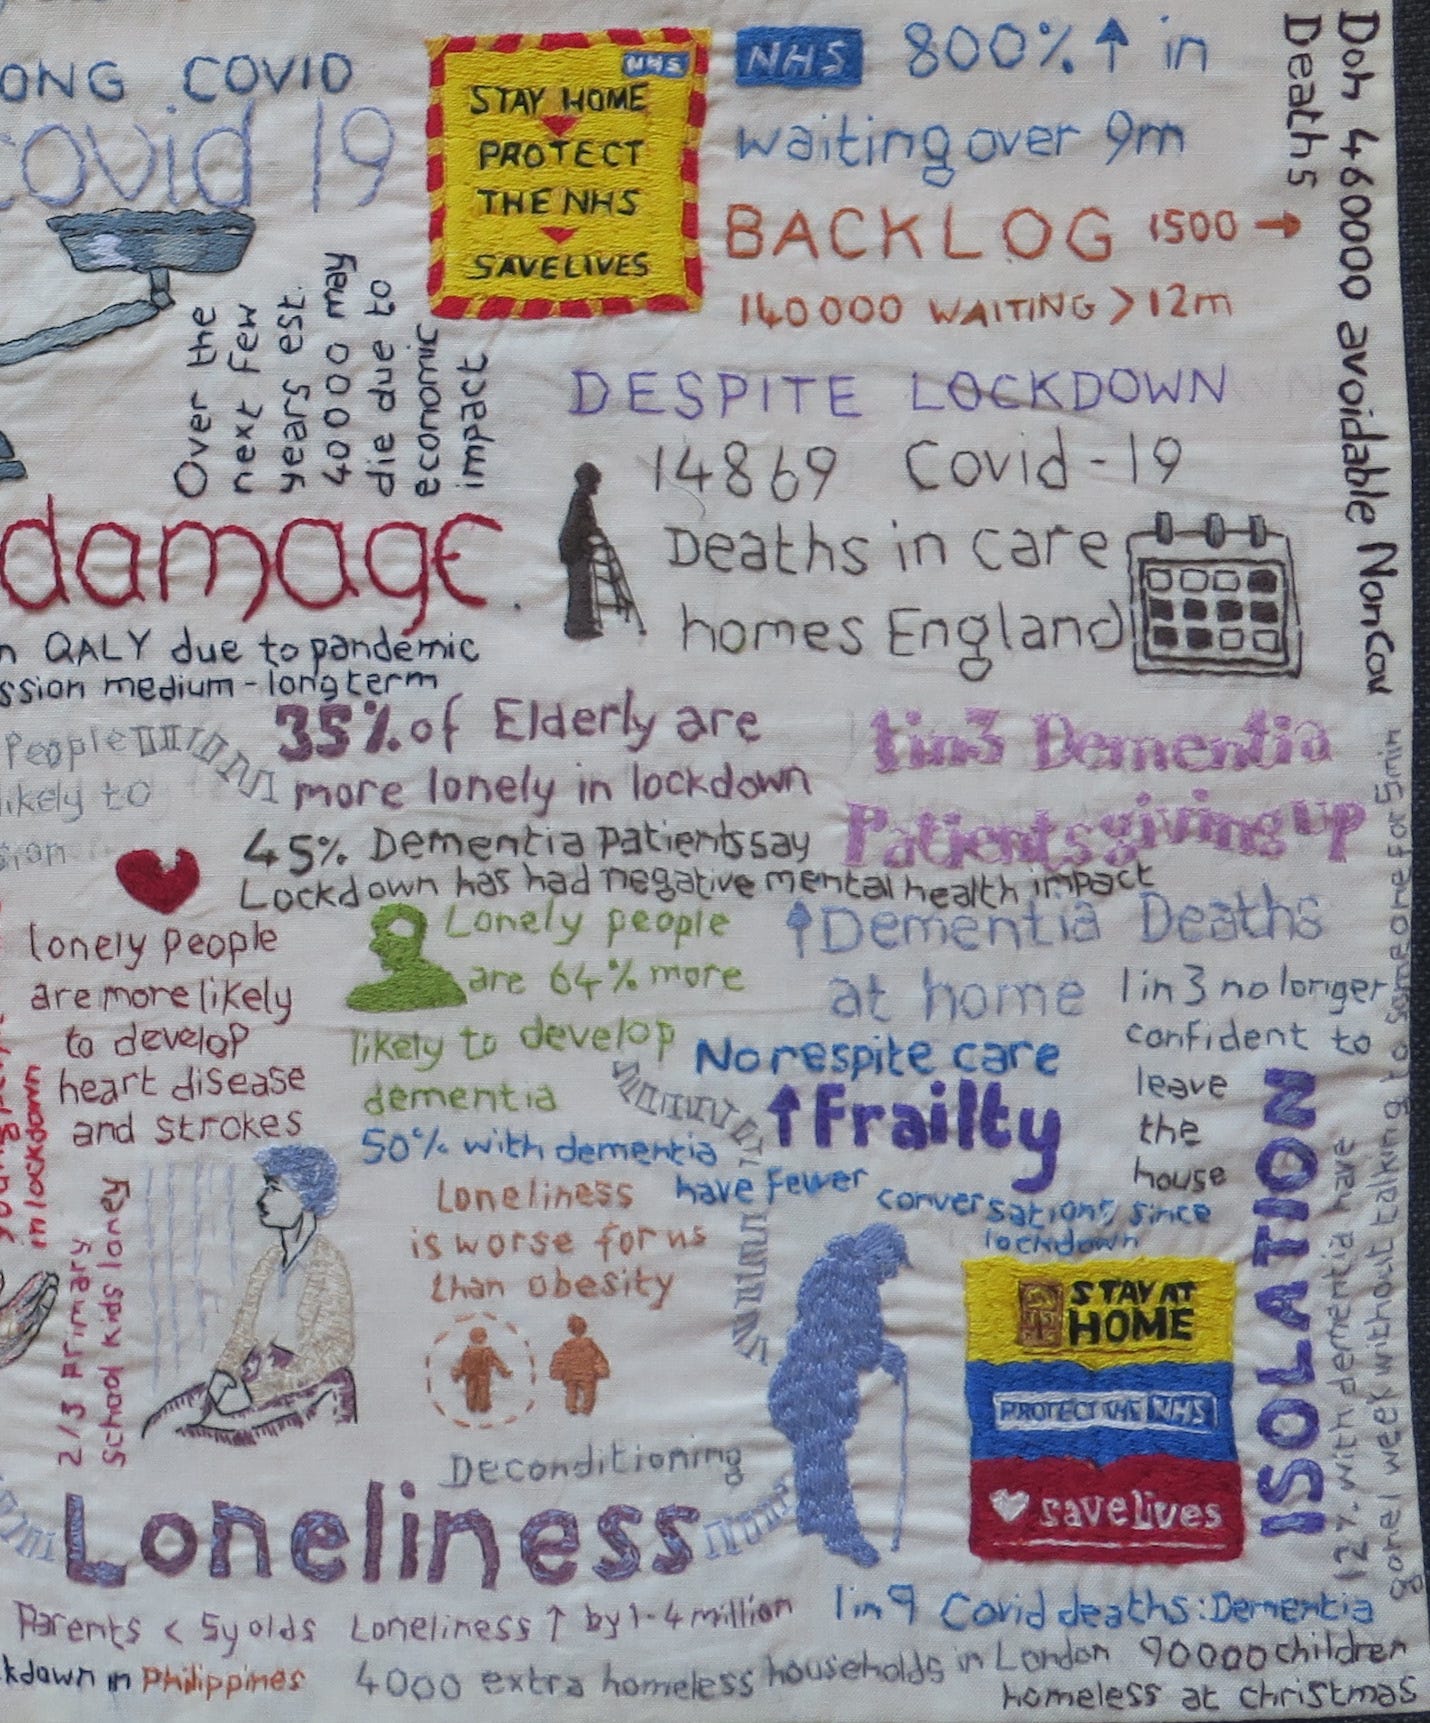 ONG COVID
covid 19
NHS
STAY HOME
PROTECT
THE NHS
SAVE LIVES
NHS 800% ↑ in
waiting over 9m
BACKLOG 1500 →
140000 WAITING > 12m
Doh 46000 avoidable NonCov
Deaths
Over the
next few
years est.
40000 may
die due to
economic
impact
DESPITE LOCKDOWN
14869 Covid-19
Deaths in care
homes England
damage
n QALY due to pandemic
ssion medium-long term
People
ikely to
sion
35% of Elderly are
more lonely in lockdown
1in3 Dementia
Patients giving up
45% Dementia Patients say
Lockdown has had negative mental health impact
lonely people
are more likely
to develop
heart disease
and strokes
Lonely people
are 64% more
likely to develop
dementia
↑Dementia Deaths
at home
1in3 no longer
confident to
leave
the
house
No respite care
↑Frailty
50% with dementia
have fewer
conversations since
lockdown
in lockdown
2/3 Primary
School kids lonely
Loneliness
is worse for us
than obesity
ISOLATION
12% with dementia have
gone 1 week without talking to someone for 5min
STAY AT
HOME
PROTECT THE NHS
save lives
Deconditioning
Loneliness
Parents < 5y olds Loneliness ↑ by 1-4 million
1in9 Covid deaths: Dementia
kdown in Philippines
4000 extra homeless households in London 90000 children
homeless at christmas